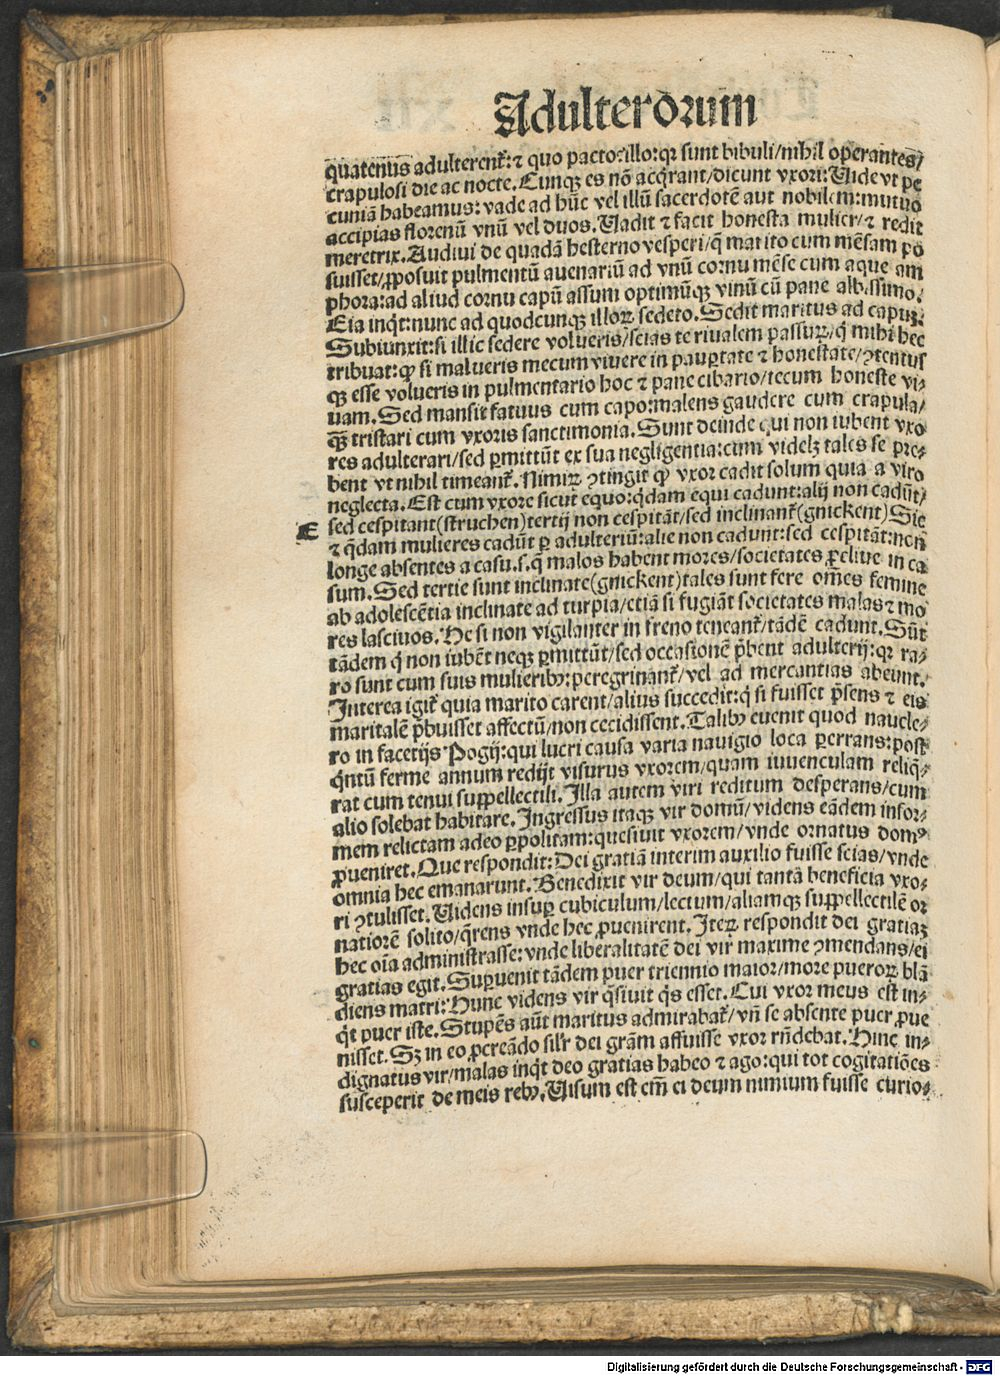 Adulterorum
quatenus adulterent᷑:⁊ quo pacto:illo:qꝛ sunt bibuli/nihil operantes/
crapulosi die ac nocte.Cunqꝫ es nō acq̄rant/dicunt vxori:Uide vt pe
cuniā habeamus:vade ad hūc vel illū sacerdotē aut nobilem:mutuo
accipias florenū vnū vel duos.Uadit ⁊ facit honesta mulier/⁊ redit
meretrix.Audiui de quadā hesterno vesperi/q̄ marito cum mēsam po
suisset/ꝓposuit pulmentū auenariū ad vnū cornu mēse cum aque am
phora:ad aliud cornu capū assum optimūqꝫ vinū cū pane albissimo.
Eia inq̇t:nunc ad quodcunqꝫ illoꝝ sedeto.Sedit maritus ad capū:
Subiunxit:si illic sedere volueris/scias te riualem passuꝝ/q̇ mihi hec
tribuat:qͥ si malueris mecum viuere in paupertate ⁊ honestate/ꝯtentus
qꝫ esse volueris in pulmentario hoc ⁊ pane cibario/tecum honeste vi-
uam.Sed mansit fatuus cum capo:malens gaudere cum crapula/
qꝫ̄ tristari cum vxoris sanctimonia.Sunt deinde qui non iubent vxo
res adulterari/sed ꝑmittūt ex sua negligentia:cum videlꝫ tales se pre-
bent vt nihil timeant᷑.Nimiꝝ ꝯtingit ꝙ vxor cadit solum quia a viro
neglecta.Est cum vxore sicut equo:q̇dam equi cadunt:alij non cadūt/
E sed cespitant(struchen)tertij non cespitāt/sed inclinant᷑(gnickent)Sic
⁊ q̄dam mulieres cadūt ꝑ adulteriū:alie non cadunt:sed cespitāt:non
longe absentes a casu.s.q̄ malos habent mores/societates ꝓcliue in ca
sum.Sed tertie sunt inclinate(gnickent)tales sunt fere om̄es femine
ab adolescētia inclinate ad turpia/etiā si fugiāt societates malas ⁊ mo
res lasciuos.He si non vigilanter in freno teneant᷑/tādē cadunt.Sūt
tādem q̇ non iubēt neqꝫ ꝑmittūt/sed occasionē p̄bent adulterij:qꝛ ra-
ro sunt cum suis mulieribꝰ:peregrinant᷑/vel ad mercantias abeunt.
Interea igit᷑ quia marito carent/alius succedit:q̇ si fuisset p̄sens ⁊ eis
maritalē p̄buisset affectū/non cecidissent.Talibꝰ euenit quod naucle-
ro in facetijs Pogij:qui lucri causa varia nauigio loca ꝑerrans:post
q̄ntū ferme annum redijt visurus vxorem/quam iuuenculam reliq̄-
rat cum tenui suppellectili.Illa autem viri reditum desperans/cum
alio solebat habitare.Ingressus itaqꝫ vir domū/videns eādem infor-
mem relictam adeo ꝑpolitam:quesiuit vxorem/vnde ornatus domꝰ
ꝓueniret.Que respondit:Dei gratiā interim auxilio fuisse scias/vnde
omnia hec emanarunt.Benedixit vir deum/qui tantā beneficia vxo-
ri ꝯtulisset.Uidens insuꝑ cubiculum/lectum/aliamqꝫ suppellectilē or
natiorē solito/q̄rens vnde hec ꝓuenirent.Iteꝝ respondit dei gratiaꝫ
hec oīa administrasse:vnde liberalitatē dei vir maxime ꝯmendans/ei
gratias egit.Suꝑuenit tādem puer triennio maior/more pueroꝝ blā
diens matri:Hunc videns vir q̄siuit q̇s esset.Cui vxor meus est in-
q̇t puer iste.Stupēs aūt maritus admirabat᷑/vn̄ se absente puer ꝓue
nisset.Sꝫ in eo ꝓcreādo silr̄ dei grām affuisse vxor rn̄debat.Hinc in-
dignatus vir/malas inq̇t deo gratias habeo ⁊ ago:qui tot cogitatiōes
susceperit de meis rebꝰ.Uisum est em̄ ei deum nimium fuisse curio-
Digitalisierung gefördert durch die Deutsche Forschungsgemeinschaft - DFG